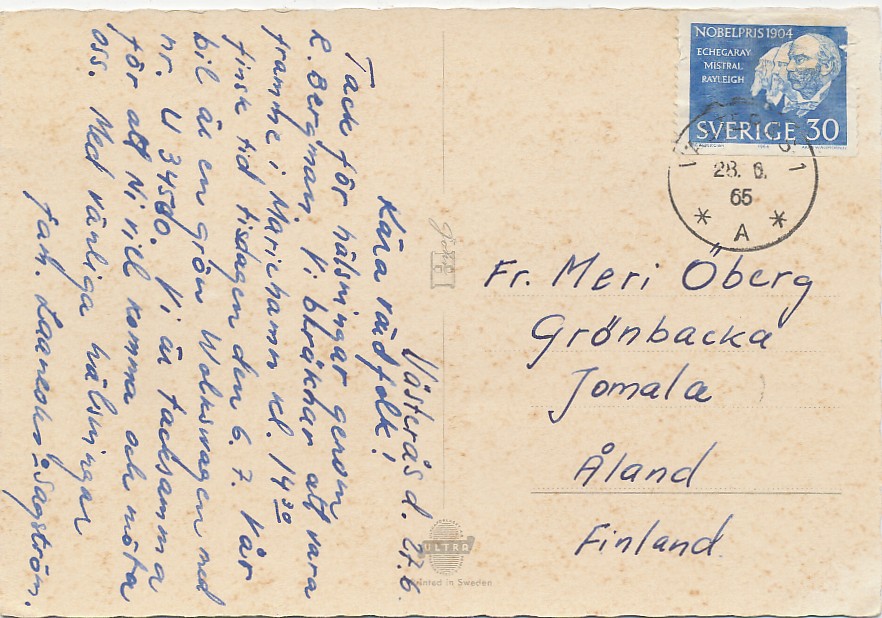 Västerås d. 27.6.
Kära rådfolk!
Tack för hälsningar genom
R. Bergman. Vi beräknar att vara
framme i Mariehamn kl. 14 30
finsk tid tisdagen den 6. 7. Vår
bil är en grön Wolkswagen med
nr. U 34580. Vi är tacksamma
för att Ni vill komma och möta
oss. Med vänliga hälsningar
fam. Sagström.
NOBELPRIS 1904
ECHEGARAY
MISTRAL
RAYLEIGH
SVERIGE 30
VÄSTERÅS 1
28. 6.
65
* A *
Fr. Meri Öberg
Grönbacka
Jomala
Åland
Finland.
ULTRA
Printed in Sweden